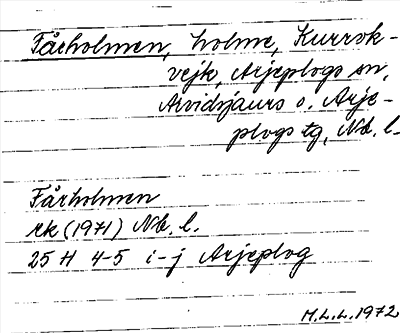 Fårholmen, holme, Kurrok-
vejk, Arjeplogs sn,
Arvidsjaurs o. Arje-
plogs tg, Nb. l.
Fårholmen
rk (1971) Nb. l.
25 H 4-5 i-j Arjeplog
M.L.L. 1972